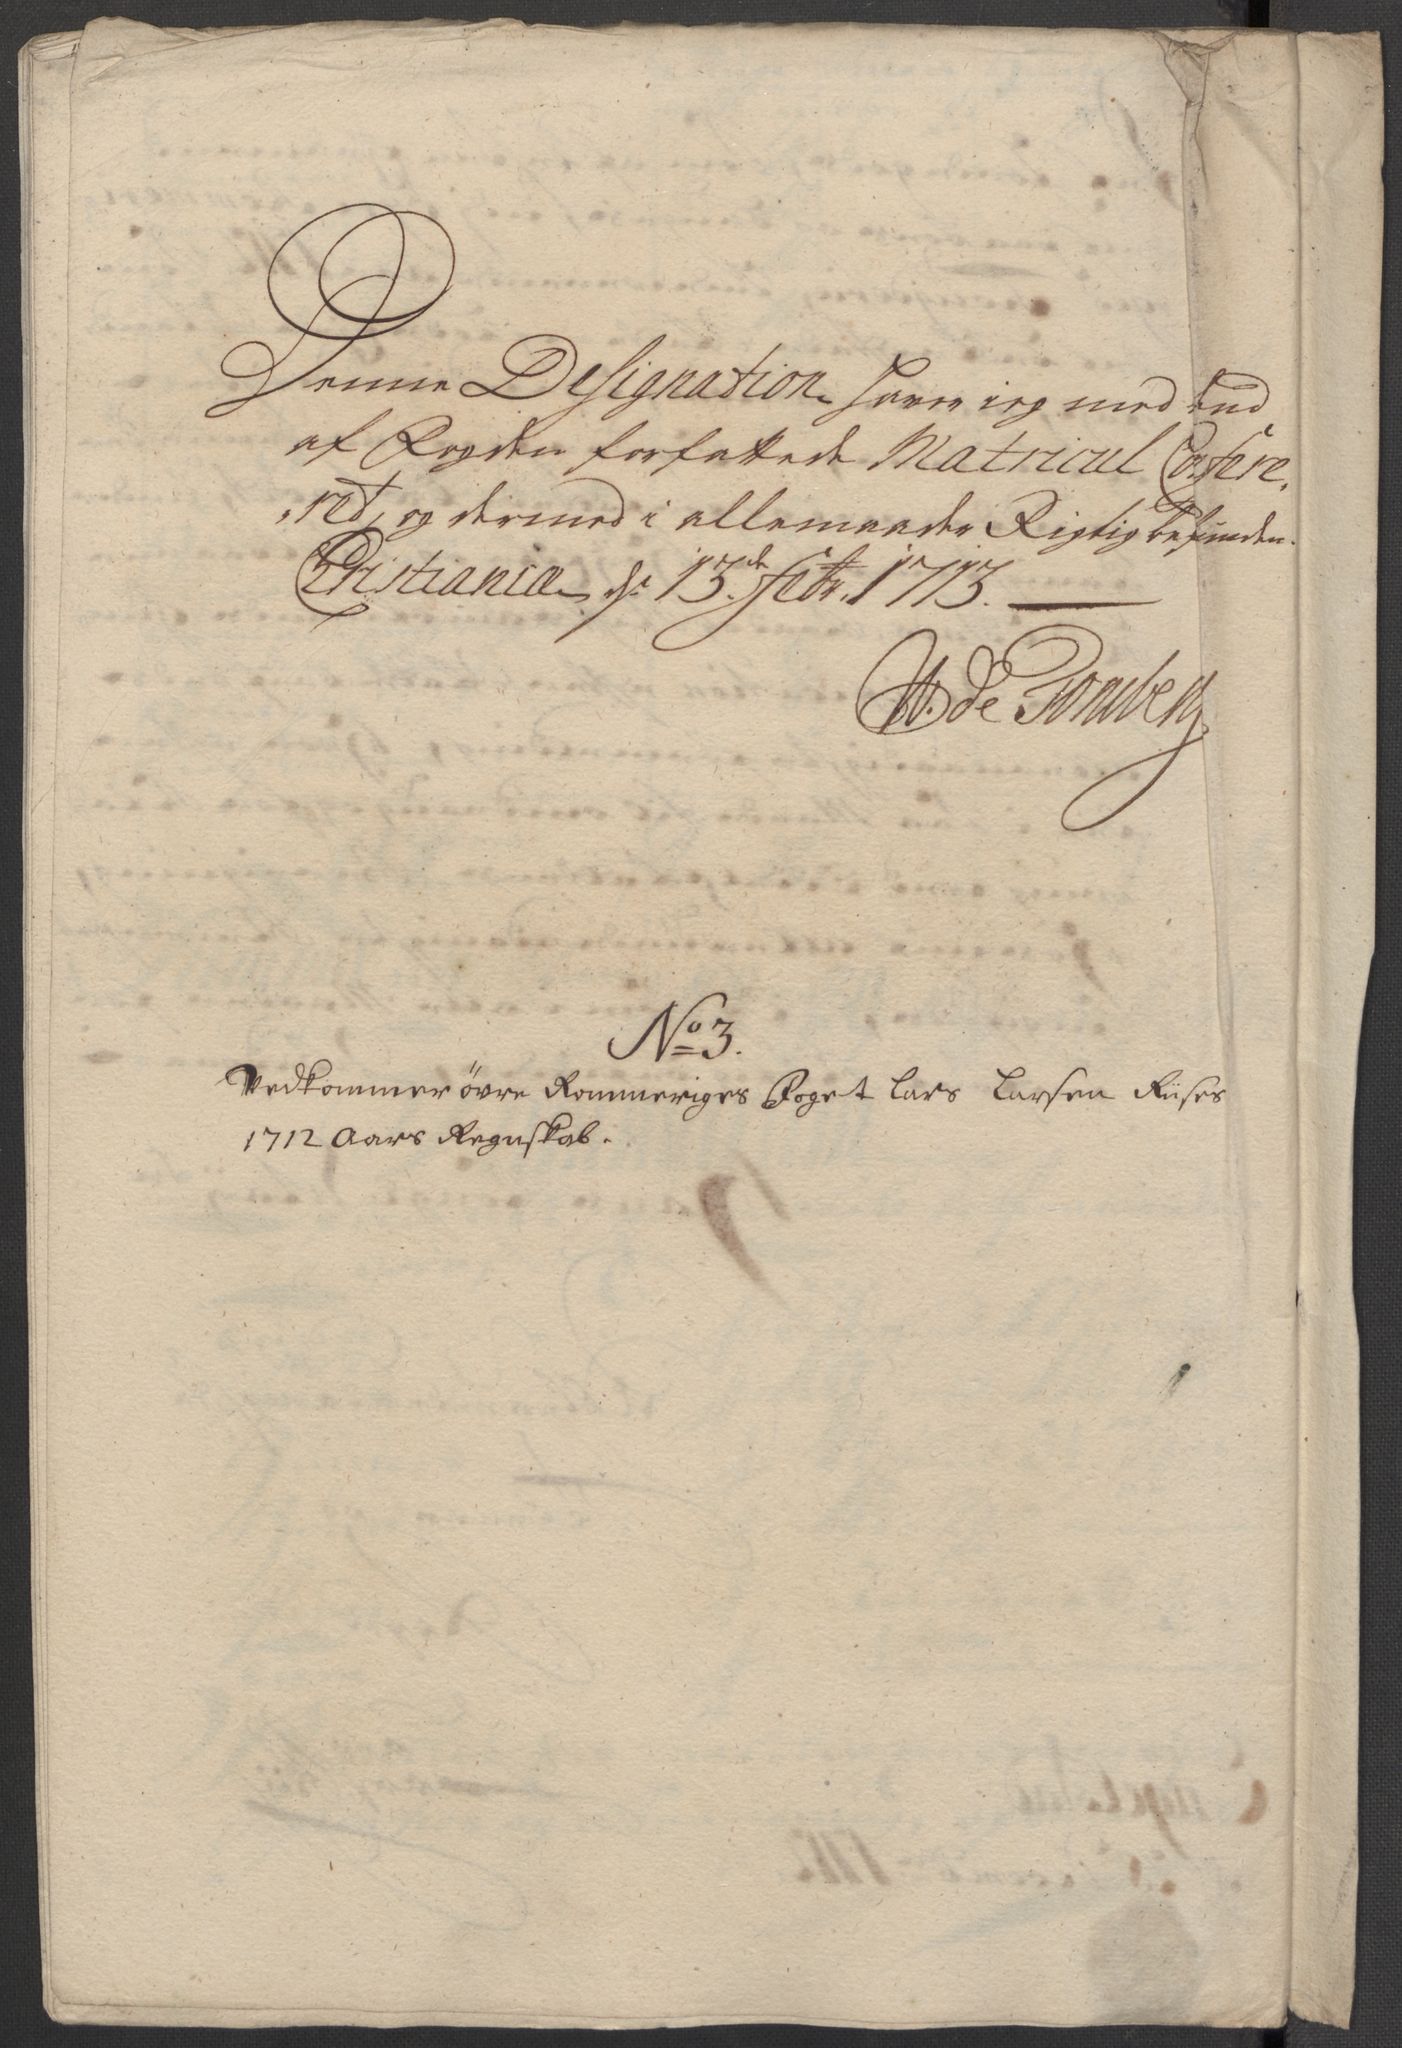 Denne Designation haver ieg med End
af Fogden forfattede Matricul Confere,
,ret, og dermed i allemaader Rigtig befunden.
Cristiania d. 13.de Febr. 1713.
W. de Tonsberg
No 3.
Vedkommer övre Rommeriges Foget Lars Larsen Riises
1712 Aars Regnskab.